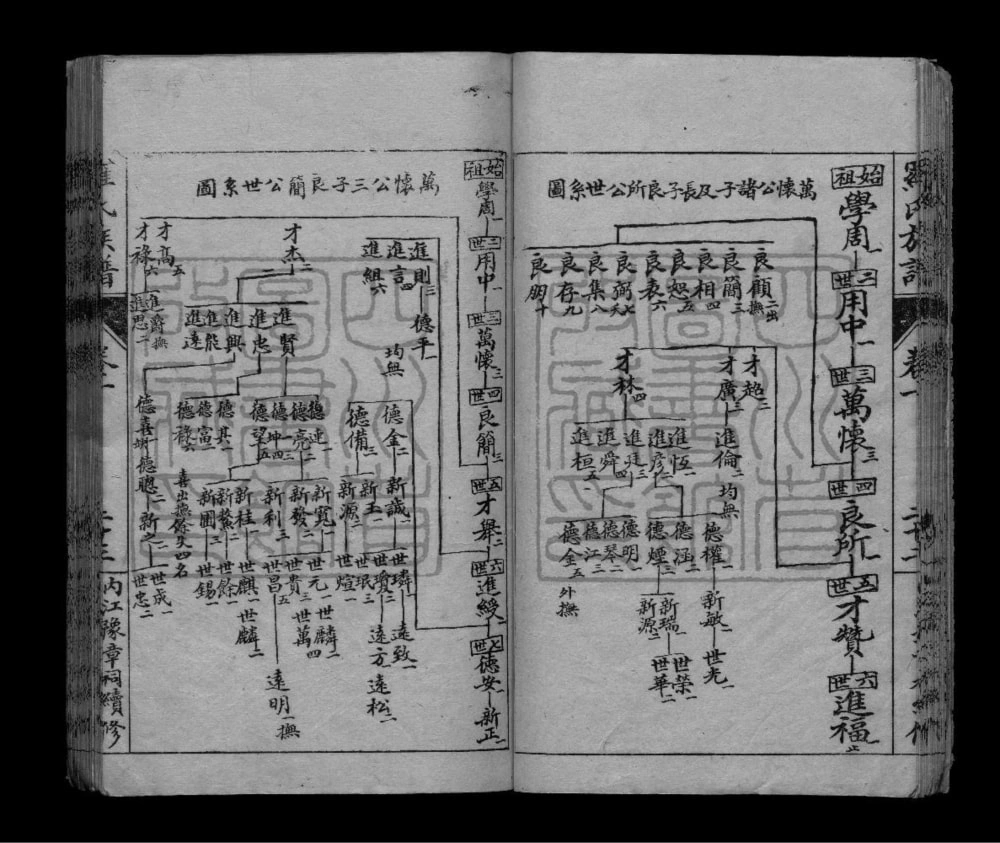 羅氏族譜
卷一
萬懷公諸子及長子良所公世系圖
始祖學周一
二世用中一
三世萬懷三
四世良所一
五世才贊一
六世進福止
良顧二出撫
良簡三
良相四
良恕五
良表六
良弼七
良集八
良存九
良朋十
才超二
才廣三
才林四
進倫一
均無
進恆一
進彥二
進廷三
進舜四
進桓五
德權一
德涵一
德煙二
德明一
德琴二
德江三
德金五
外撫
新敏一
世光一
新瑞一
新源二
世榮一
世華二
萬懷公三子良簡公世系圖
始祖學周一
二世用中一
三世萬懷三
四世良簡三
五世才舉一
六世進綬一
七世德安一
新正一
進則三
進言四
進組六
德平一
均無
才杰二
才高五
才祿六
進爵撫
進思二
進賢一
進忠二
進興三
進能
進遠
德金二
德備三
德連一
德亮二
德坤四
德望五
德其一
德富二
德祿六
德喜
德聰二
喜出撫餘失四名
新誠一
新玉一
新源二
新寬一
新發二
新利三
新桂一
新鰲二
新圖三
新之一
世璘一
世瓊二
世珉三
世煊一
世元一
世麟二
世貴三
世萬四
世昌五
世麒一
世麟二
世餘一
世錫一
世成一
世忠二
遠致一
遠方一
遠松二
遠明一撫
羅氏族譜
卷一
二十三
內江豫章祠續修